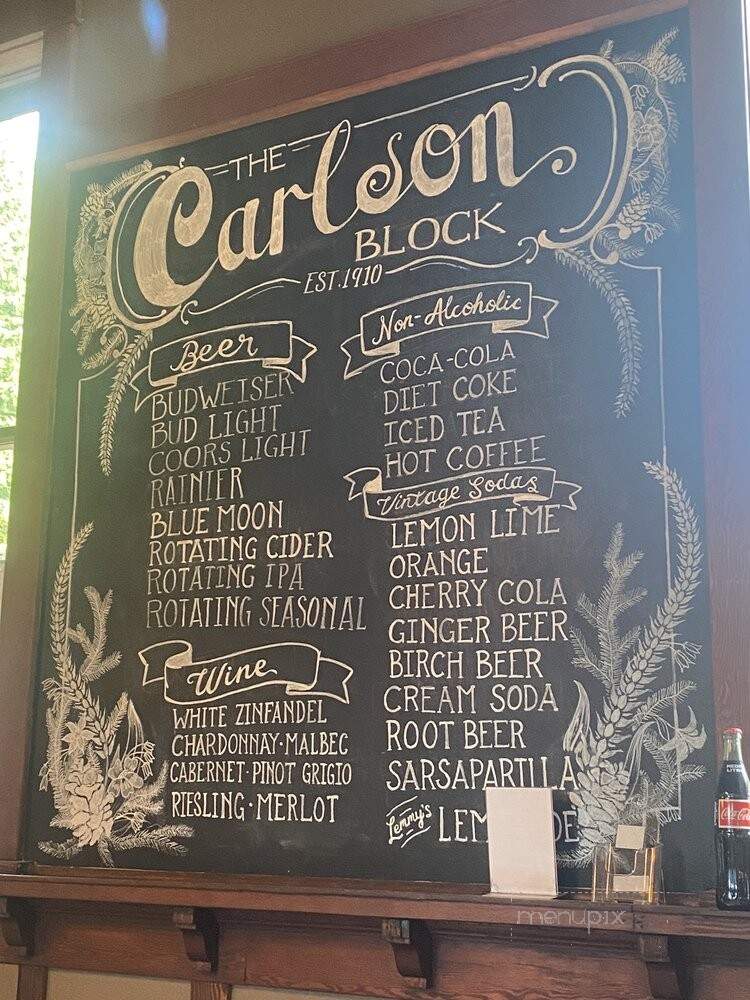 THE
Carlson
BLOCK
EST. 1910
Beer
BUDWEISER
BUD LIGHT
COORS LIGHT
RAINIER
BLUE MOON
ROTATING CIDER
ROTATING IPA
ROTATING SEASONAL
Wine
WHITE ZINFANDEL
CHARDONNAY·MALBEC
CABERNET·PINOT GRIGIO
RIESLING·MERLOT
Non-Alcoholic
COCA-COLA
DIET COKE
ICED TEA
HOT COFFEE
Vintage Sodas
LEMON LIME
ORANGE
CHERRY COLA
GINGER BEER
BIRCH BEER
CREAM SODA
ROOT BEER
SARSAPARILLA
Lemmy's
menupix